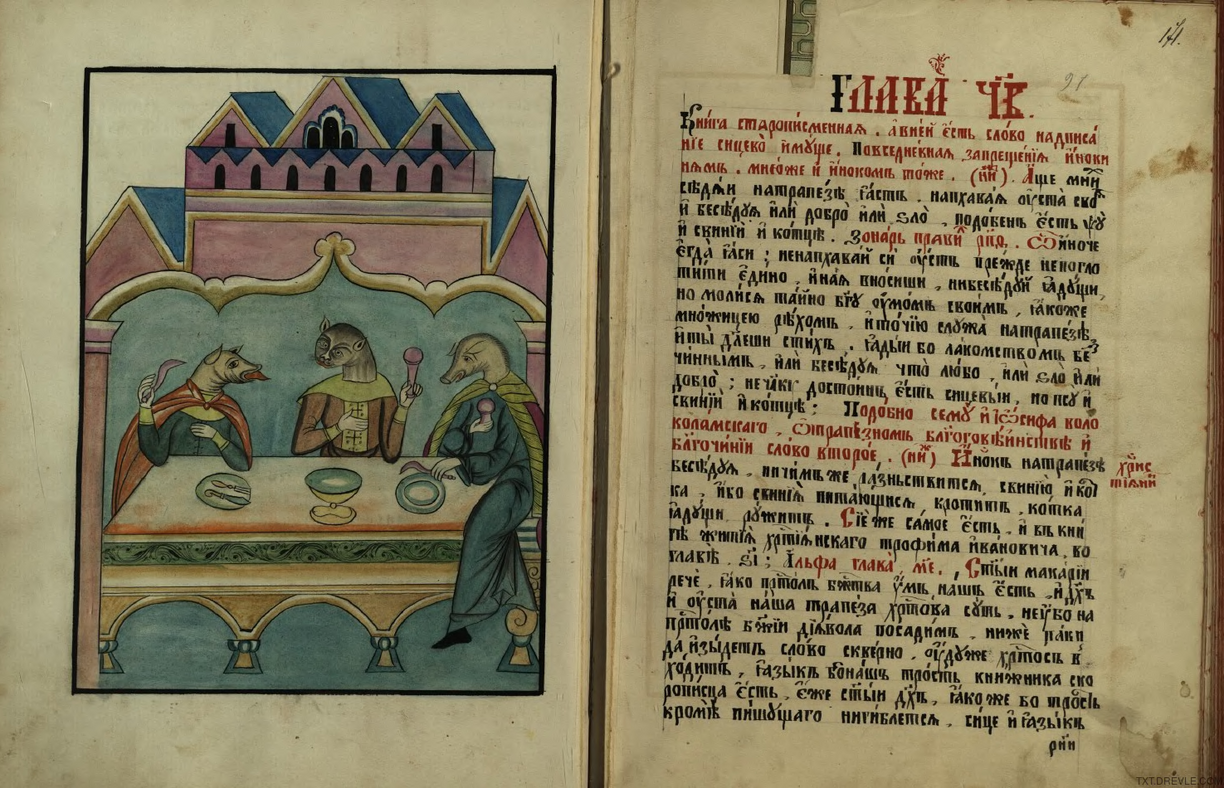 141.
31
ГЛАВА̀ Ч҃В.
Кни́га старопи́сменная. а҆ в не́й є҆́сть сло́во надписа́
нїе сицево̀ и҆мꙋ́ще. Повседне́вная запреще́нїѧ и҆́ноки
нѧмъ. мнѣ́ же и҆ и҆нокомъ то́же. (н҃и). А҆́ще мни́
сѣдѧ́й на трапе́зѣ ꙗ҆́стъ. напхава́ѧ ᲂу҆ста̀
и҆ бесѣ́дꙋѧ и҆лѝ добро̀ и҆лѝ ѕло̀, подо́бенъ є҆́сть
и҆ свинїѝ и҆ ко́тцѣ. Зона́рь пра́ви р҃л. Ѿ и҆́ноче
є҆гда̀ ꙗ҆сѝ; не напхава́й сѝ ᲂу҆́стъ пре́жде не погло
ти́ти є҆ди́но, и҆ на́ѧ вно́сиши, ни бесѣ́дꙋй ꙗ҆дꙋ́щи,
но моли́сѧ та́йно бг҃ꙋ ᲂу҆мо́мъ свои́мъ, ꙗ҆́коже
мно́жицею рѣ́хомъ. и҆ то́чїю слꙋжа̀ на трапе́зѣ,
и҆ ты̀ дае́ши сти́хъ. ꙗ҆ды́й бо ла́комствомъ бе́з
чи́ннымъ, и҆лѝ бесѣ́дꙋѧ что̀ лю́бо, и҆лѝ ѕло̀ и҆лѝ
добро̀; не чл҃кꙋ досто́инъ є҆́сть сицевы́й, но псꙋ̀ и҆
свинїѝ и҆ ко́тцѣ: Подо́бно семꙋ̀ и҆ і҆ѡ́сифа воло
кола́мскаго, ѿ трапе́зномъ бл҃гоговѣ́инствѣ и҆
бл҃гочи́нїи сло́во второ́е. (н҃и) И҆́нокъ на трапе́зѣ
хр̑ис
тїѧ́ни
бесѣ́дꙋѧ, ничи́мъ же ра́зньствитсѧ, свинїю̀ и҆ ко́т
ка, и҆́бо свинїѧ̀ пита́ющисѧ, кропти́тъ, ко́тка
ꙗ҆дꙋ́щи рꙋ́житъ. Сїе́ же са́мое є҆́сть, и҆ въ кни́
гѣ житїѧ̀ хр҃тїѧ́нскаго трофи́ма и҆ва́новича, во
главѣ̀. ѕ҃і; А҆́льфа глава̀ м҃е., Ст҃ы́й мака́рїй
речѐ, ꙗ҆́ко прⷭ҇то́лъ бж҃тва̀ ᲂу҆́мъ на́шъ є҆́сть, и҆ дх҃ъ
и҆ ᲂу҆ста̀ на́ша трапе́за хрⷭ҇то́ва сꙋ́ть, не ᲂу҆́бо на
прⷭ҇то́лѣ бж҃їи дїѧ́вола поса́димъ, нижѐ па́ки
да и҆зы́детъ сло́во скве́рно, ѻу҆дꙋ́же хрⷭ҇то́съ в
хо́дитъ, ꙗ҆зы́къ во на́шъ тро́сть кни́жника ско
ропи́сца є҆́сть, є҆́же ст҃ы́й дх҃ъ, ꙗ҆́коже бо тро́сть
кромѣ̀ пи́шꙋщаго не ги́блетсѧ, си́це и҆ ꙗ҆зы́къ
TXT.DREVLE.COM